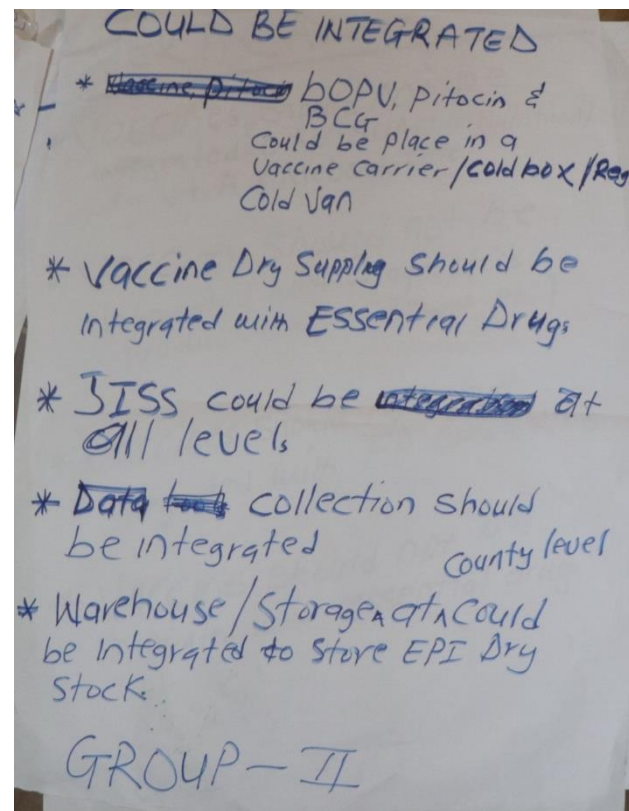 COULD BE INTEGRATED
* bOPV, Pitocin &
BCG
Could be place in a
Vaccine Carrier/Coldbox/Reg
Cold Van
* Vaccine Dry Supplies should be
integrated with Essential Drugs
* JISS could be at
all levels
* Data collection should
be integrated
County level
* Warehouse/Storage at could
be integrated to store EPI Dry
Stock.
GROUP-II